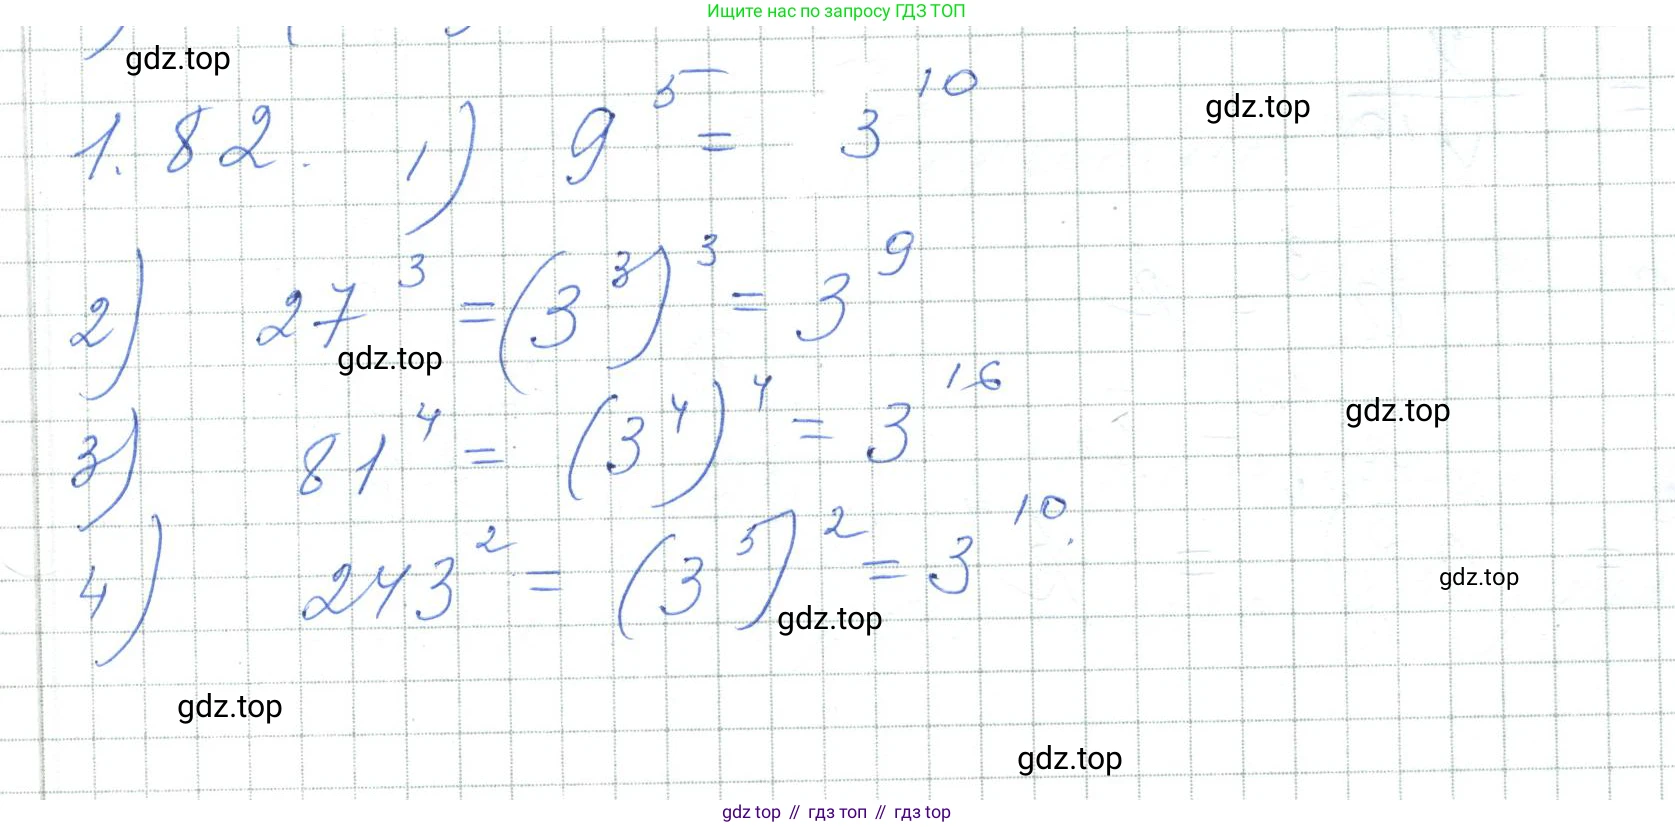 Ищите нас по запросу ГДЗ ТОП
gdz.top
gdz.top
1.82. 1) 9⁵ = 3¹⁰
2) 27³ = (3³)³ = 3⁹
gdz.top
3) 81⁴ = (3⁴)⁴ = 3¹⁶
gdz.top
4) 243² = (3⁵)² = 3¹⁰.
gdz.top
gdz.top
gdz.top
gdz.top
gdz top // гдз топ // gdz top